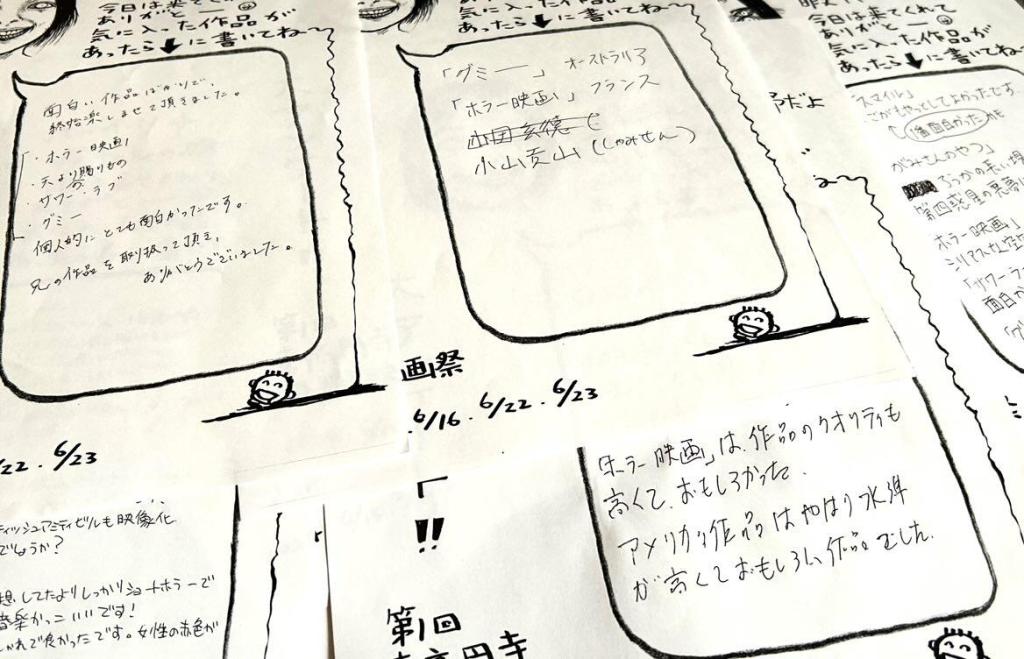 今日は来てくれて
ありがと
気に入った作品が
あったら↓に書いてね〜
面白い作品ばかりで、
終始楽しませて頂きました。
・ホラー映画
・天より賜りもの
・サワー・ラブ
・グミー
個人的にとても面白かったです。
兄の作品を取り扱って頂き、
ありがとうございました。
6/23
気に入った作品が
あったら↓に書いてね〜
「グミー」 オーストラリア
「ホラー映画」 フランス
小山貢山(しゃみせん)
画祭
6/16.6/22.6/23
今日は来てくれて
ありがと
気に入った作品が
あったら↓に書いてね〜
スマイル」
個面白かったかも
第四惑星の悪夢
ホラー映画」
シリアスな空
「サワーラ
面白か
「ホラー映画」は、作品のクオリティも
高くて、おもしろかった。
アメリカの作品はやはり水準
が高くておもしろい作品でした。
も映像化
でしょうか?
想してたよりしっかりショートホラーで
音楽かっこいいです!
しゃれで良かったです。女性の赤色が
!!
第1回
高円寺